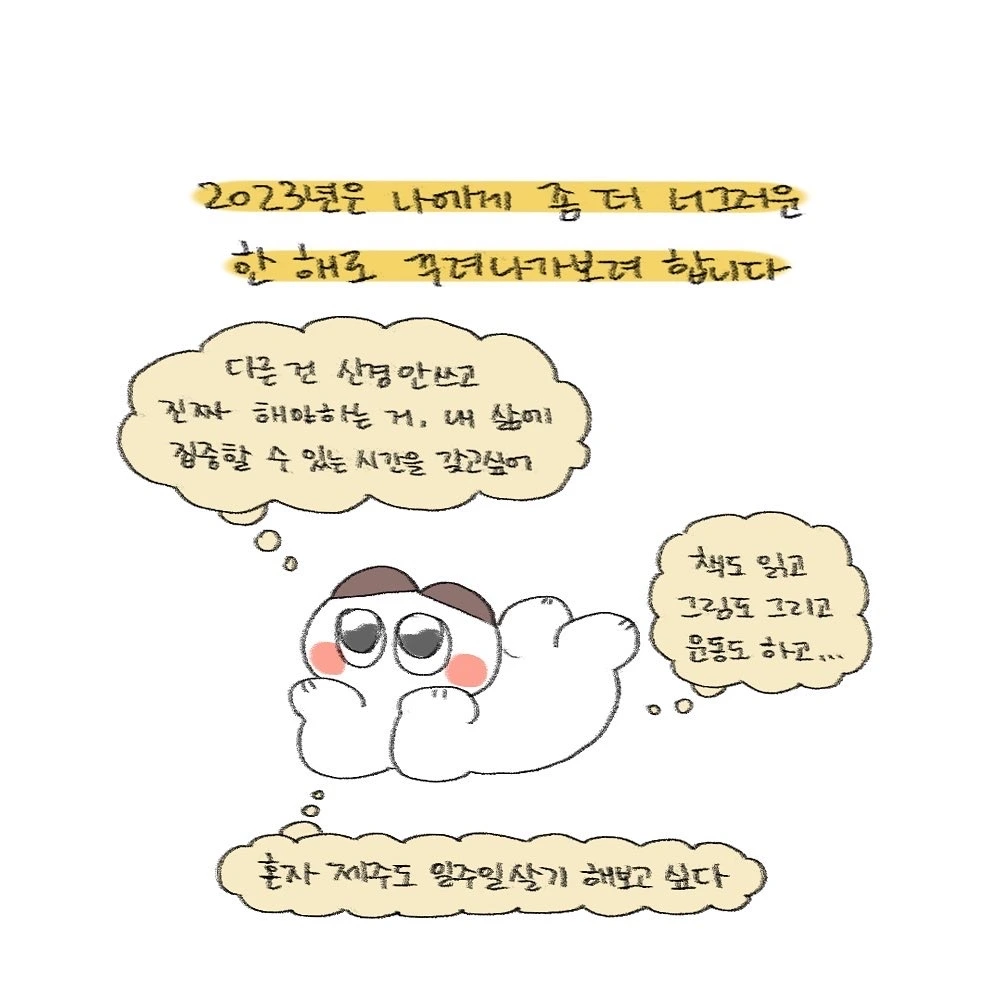 2023년은 나에게 좀 더 너그러운
한 해로 꾸려나가보려 합니다
다른 건 신경안쓰고
진짜 해야하는 거, 내 삶에
집중할 수 있는 시간을 갖고싶어
책도 읽고
그림도 그리고
운동도 하고...
혼자 제주도 일주일살기 해보고 싶다